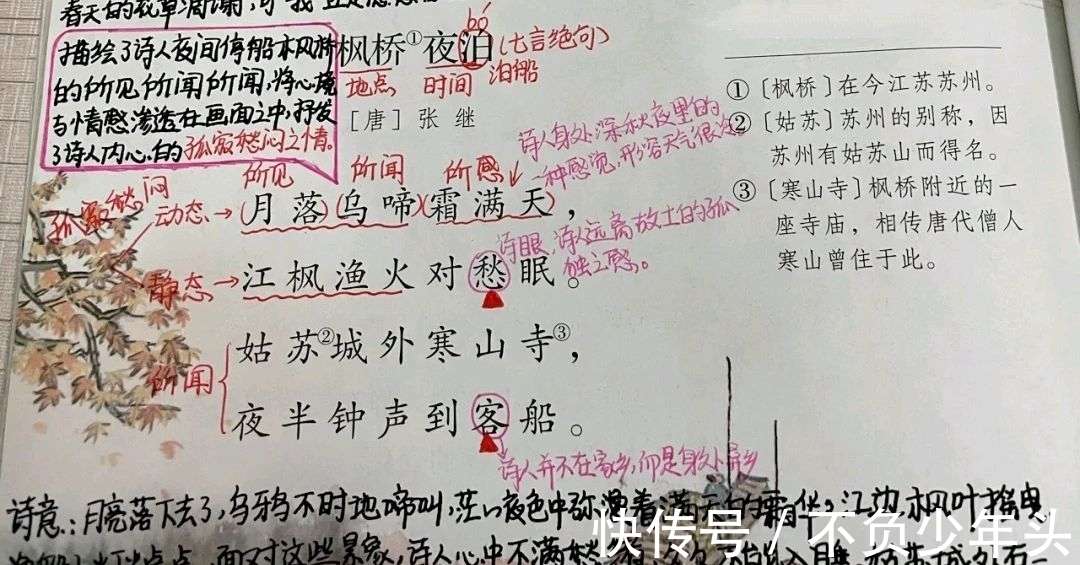 春天的花草凋谢,可我
描绘了诗人夜间停船枫桥
的所见所闻所闻,将心境
与情感渗透在画面之中,抒发
了诗人内心的孤寂愁闷之情。
bó
枫桥①夜泊(七言绝句)
地点 时间 泊船
[唐]张继
诗人身处深秋夜里的
一种感觉,形容天气很冷
所见 所闻 所感
孤寂愁闷
动态→(月落)(乌啼)(霜满天),
诗眼,诗人远离故土的孤
独之感。
静态→江枫渔火对愁眠。
姑苏②城外寒山寺③,
所闻
夜半钟声到客船。
诗人并不在家乡,而是身处异乡
①[枫桥]在今江苏苏州。
②[姑苏]苏州的别称,因
苏州有姑苏山而得名。
③[寒山寺]枫桥附近的一
座寺庙,相传唐代僧人
寒山曾住于此。
诗意:月亮落下去了,乌鸦不时地啼叫,茫茫夜色中弥漫着满天的霜华,江边枫叶摇曳
面对这些景象,诗人心中不满愁
快传号/不负少年头